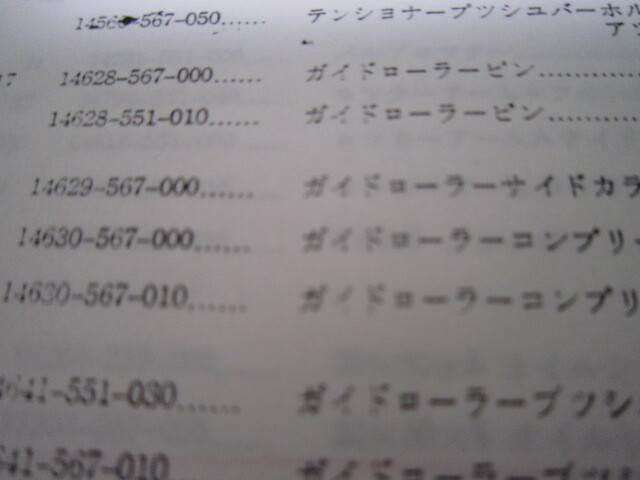 14566-567-050...... テンショナープッシュバーホル
アツ
17 14628-567-000...... ガイドローラーピン............
14628-551-010...... ガイドローラーピン............
14629-567-000...... ガイドローラーサイドカラ
14630-567-000...... ガイドローラーコンプリー
14630-567-010...... ガイドローラーコンプリ
4641-551-030...... ガイドローラーブッシ
641-567-010 ガイドローラー